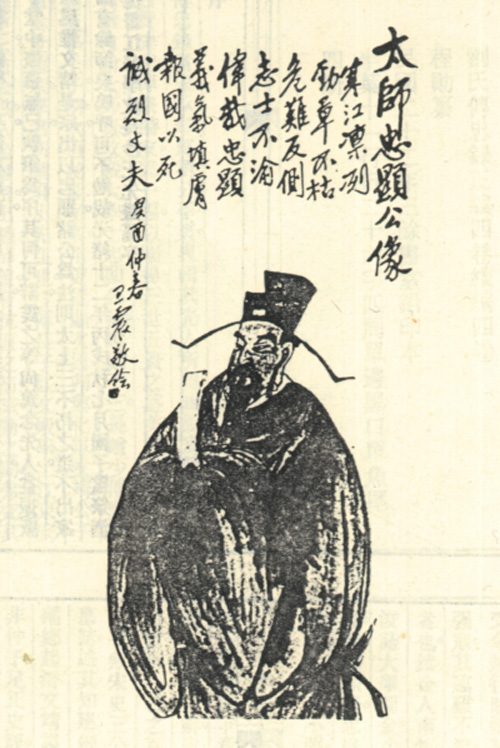 太師忠顯公像
寒江凛冽
勁草不枯
危難反側
志士不淪
偉哉忠顯
義氣填膺
報國以死
誠烈丈夫
癸酉仲春
王震敬繪